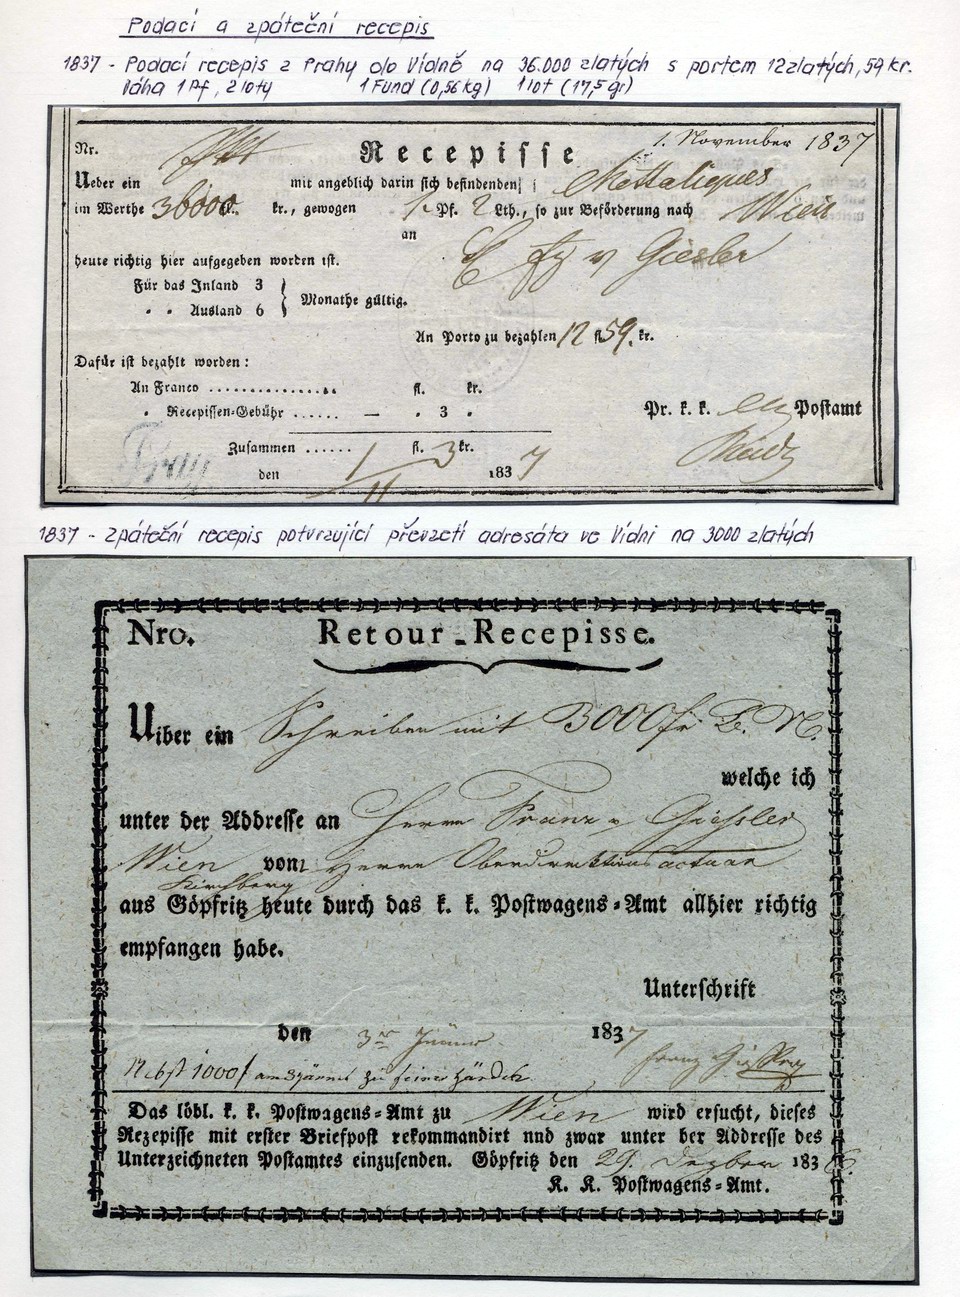 Podací a zpáteční recepis
1837 - Podací recepis z Prahy do Vídně na 36.000 zlatých s portem 12 zlatých, 59 kr.
Váha 1 Pf, 2 loty 1 Fund (0,56 kg) 1 lot (17,5 gr)
1. November 1837
Nr. Recepisse
Ueber ein mit angeblich darin sich befindenden Mettaliques
im Werthe 36000 fl. kr., gewogen 1 Pf. 2 Lth., so zur Beförderung nach Wien
an
v Giesler
heute richtig hier aufgegeben worden ist.
Für das Inland 3
" " Ausland 6 } Monathe gültig.
An Porto zu bezahlen 12 fl 59. kr.
Dafür ist bezahlt worden:
An Franco .............. fl. kr.
" Recepissen-Gebühr ...... — " 3 "
Pr. k. k. Postamt
Zusammen ...... fl. 3 kr.
den 1/11 1837
1837 - Zpáteční recepis potvrzující převzetí adresáta ve Vídni na 3000 zlatých
Nro. Retour-Recepisse.
Uiber ein Schreiben mit 3000 fr
welche ich
unter der Addresse an Herrn Franz v Giessler
Wien vom Herrn Oberdirektions actuar
Kirchberg
aus Göpfritz heute durch das k. k. Postwagens-Amt allhier richtig
empfangen habe.
Unterschrift
den 3 Jänner 1837
Nebst 1000 f
Das löbl. k. k. Postwagens-Amt zu Wien wird ersucht, dieses
Rezepisse mit erster Briefpost rekommandirt nnd zwar unter der Addresse des
Unterzeichneten Postamtes einzusenden. Göpfritz den 29. Dezber 1836.
K. K. Postwagens-Amt.